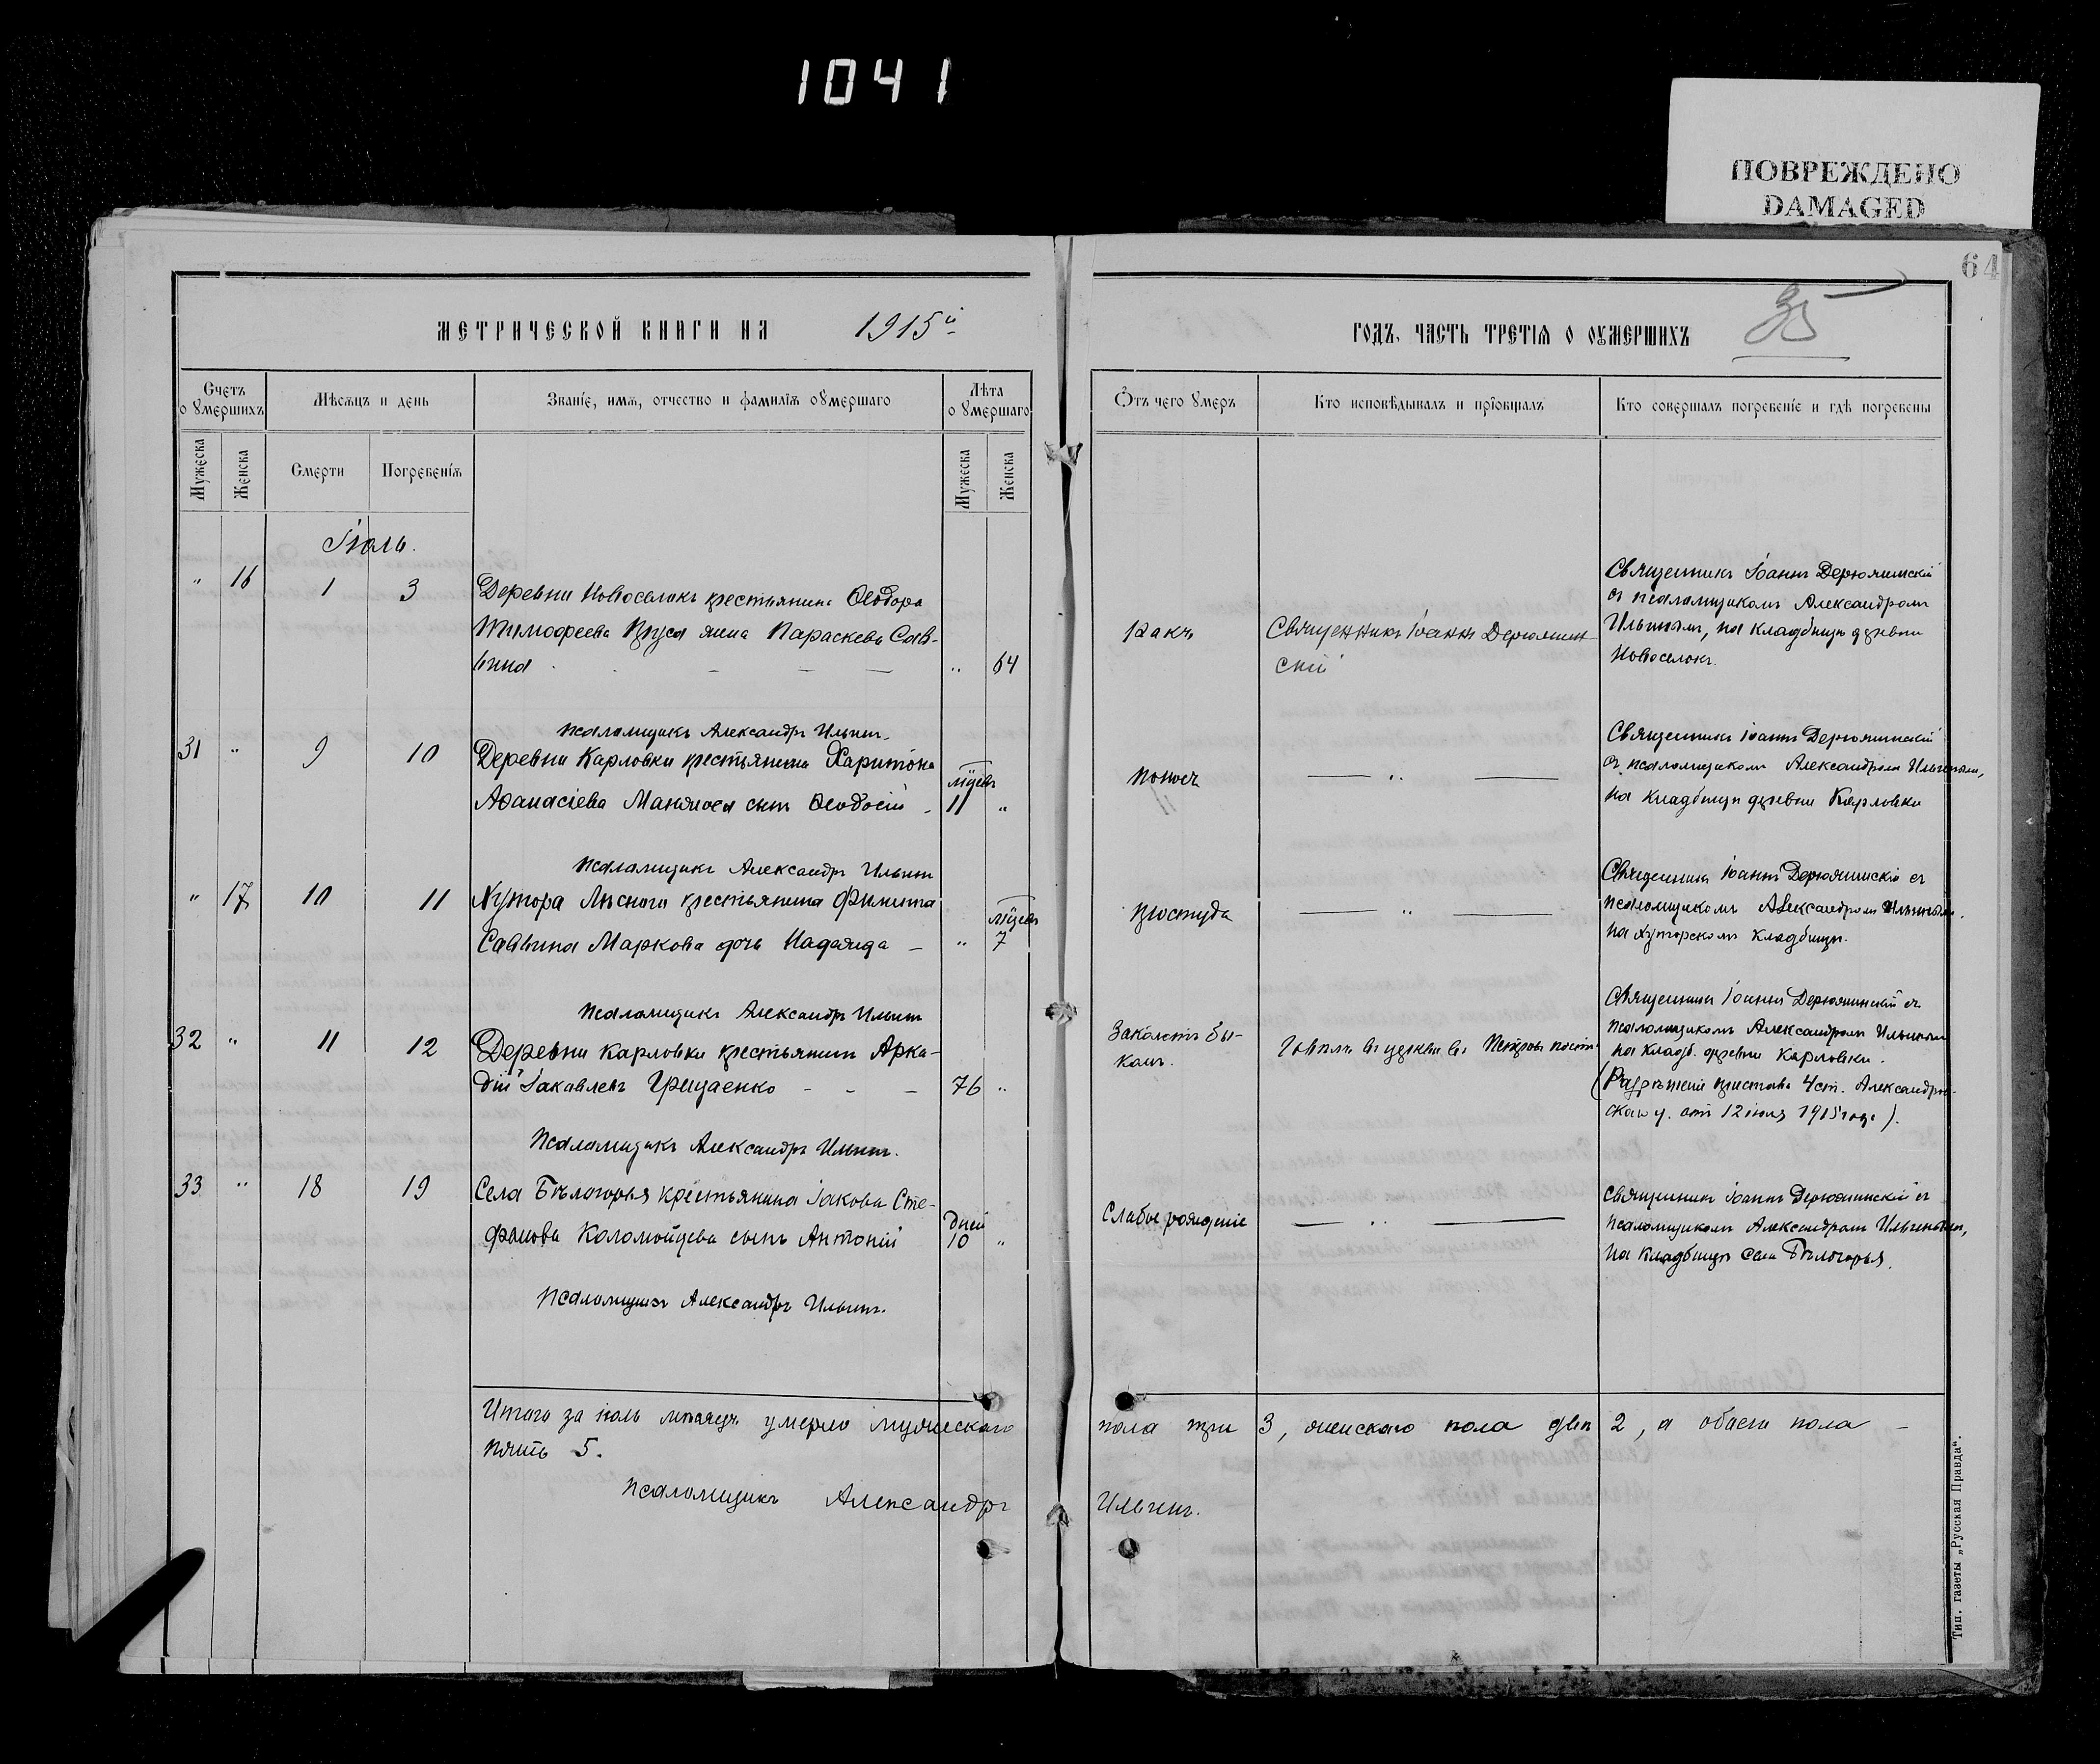 1041
ПОВРЕЖДЕНО
DAMAGED
64
35
МЕТРИЧЕСКОЙ КНИГИ НА 1915й ГОДЪ, ЧАСТЬ ТРЕТІѦ О ОУМЕРШИХЪ
Счетъ оумершихъ
Мѣсѧцъ и день
Званіе, имѧ, отчество и фамиліѧ оумершаго
Лѣта оумершаго
Ѿтъ чего умеръ
Кто исповѣдывалъ и пріобщалъ
Кто совершалъ погребеніе и гдѣ погребены
Мужеска
Женска
Смерти
Погребеніѧ
Мужеска
Женска
Іюль.
" 16 1 3
Деревни Новоселокъ крестьянина Ѳеодора
Тимофеева жена Параскева Сав-
вина " 64
Ракъ
Священникъ Іоаннъ Дерюжин-
скій
Священникъ Іоаннъ Дерюжинскій
съ псаломщикомъ Александромъ
Ильинымъ, на кладбищѣ деревни
Новоселокъ.
Псаломщикъ Александръ Ильинъ.
31 " 9 10
Деревни Карловки крестьянина Харитона
Аѳанасіева сынъ Ѳеодосій
мѣсяц.
11 "
Поносъ
— " —
Священникъ Іоаннъ Дерюжинскій
съ псаломщикомъ Александромъ Ильинымъ,
на кладбищѣ деревни Карловки
Псаломщикъ Александръ Ильинъ
" 17 10 11
Хутора Лѣсного крестьянина Филиппа
Саввина Маркова дочь Надежда —
мѣсяц.
" 7
Простуда
— " —
Священникъ Іоаннъ Дерюжинскій съ
псаломщикомъ Александромъ Ильинымъ.
на хуторскомъ кладбищѣ.
Псаломщикъ Александръ Ильинъ
32 " 11 12
Деревни Карловки крестьянинъ Арка-
дій Іаковлевъ Грищенко - - — 76 "
Заколотъ бы-
комъ.
Говѣлъ въ церкви въ Петровъ постъ
Священникъ Іоаннъ Дерюжинскій съ
псаломщикомъ Александромъ Ильинымъ
на кладб. деревни Карловки.
(Разрѣшеніе пристава 4 ст. Александров-
скаго у. отъ 12 іюля 1915 года).
Псаломщикъ Александръ Ильинъ.
33 " 18 19
Села Бѣлогорья крестьянина Іакова Сте-
фанова Коломойцева сынъ Антоній
дней
10 "
Слабое рожденіе
— " —
Священникъ Іоаннъ Дерюжинскій съ
псаломщикомъ Александромъ Ильинымъ,
на кладбищѣ села Бѣлогорья.
Псаломщикъ Александръ Ильинъ.
Итого за іюль мѣсяцъ умерло мужескаго пола три 3, женскаго пола двѣ 2, а обоего пола —
пять 5.
Псаломщикъ Александръ Ильинъ.
Тип. газеты „Русская Правда“.